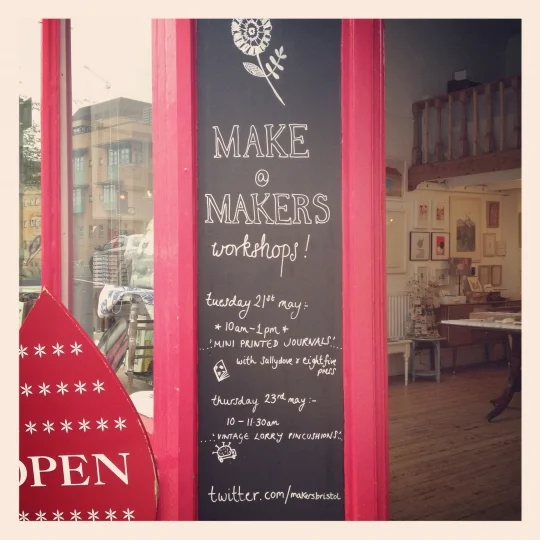 MAKE
@
MAKERS
workshops!
tuesday 21st may:-
* 10am-1pm *
'MINI PRINTED JOURNALS'
with sallydove & eightfive
press
thursday 23rd may:-
10-11·30am
'VINTAGE LORRY PINCUSHIONS'
twitter.com/makersbristol
OPEN